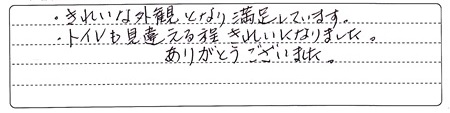 ・きれいな外観となり満足しています。
・トイレも見違える程きれいになりました。
ありがとうございました。